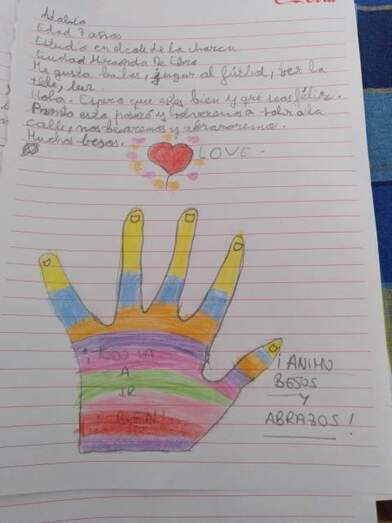 Edad 7 años
Estudia en el cole de la charca
Ciudad Miranda De Ebro
Me gusta bailar, jugar al fútbol, ver la
tele, leer
Hola. Espero que estés bien y que seas feliz.
Pronto esto pasará y volveremos a salir a la
calle, nos besaremos y abrazaremos.
Muchos besos.
LOVE.
¡TODO VA
A
IR
BIEN!
¡ANIMO
BESOS
Y
ABRAZOS!